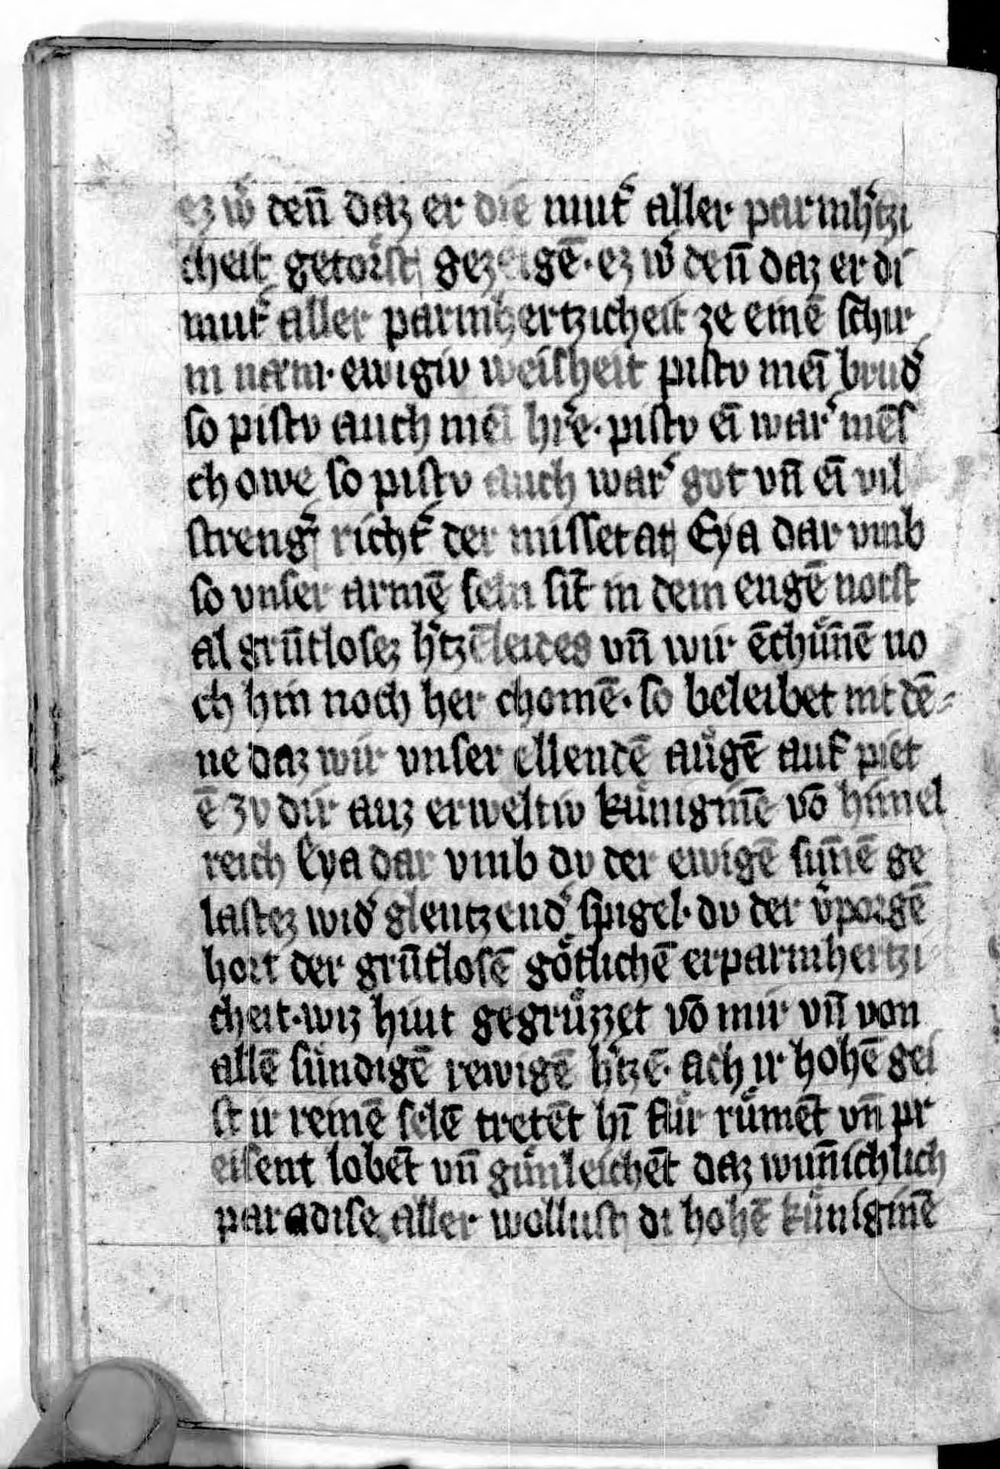 ez wͦ den̄ daz er die mut͛ aller parmh͛tzi
cheit getoͤrst gezeigē· ez wͦ den̄ daz er di
mut͛ aller parmhertzicheit ze einē schir
m nem· ewigiv weisheit pistv mei᷑ brud͛
so pistv auch mei᷑ h͛re· pistv ei᷑ war͛ mēs
ch owe so pistv auch war͛ got vn̄ ei᷑ vil
streng͛ richt͛ der missetat Eya dar vmb
so vnser armē seln sit̄ in dem engē notst
al grūtlosez h͛tzēleides vn̄ wir ēchuͤnē no
ch hin noch her chomē· so beleibet nit dē-
ne daz wir vnser ellendē aůgē auf piet
ē zv dir auz erweltiv kuͤnigin̄e vō himel
reich Eya dar vmb dv der ewigē sun̄ē ge
lastez wid͛ glentzend͛ spigel· dv der v͛porgē
hort der grūtlosē goͤtlichē erparmhertzi
cheit· wiz hiut gegruͤzzet vō mir vn̄ von
allē suͤndigē rewigē h͛tzē· ach ir hohē gei
st ir reinē selē tretēt h͛ fuͤr ruͤmēt vn̄ pr
eisent lobēt vn̄ guͤnleichēt daz wun̄ichlich
paradise aller wollust di hohē kuͤniginē